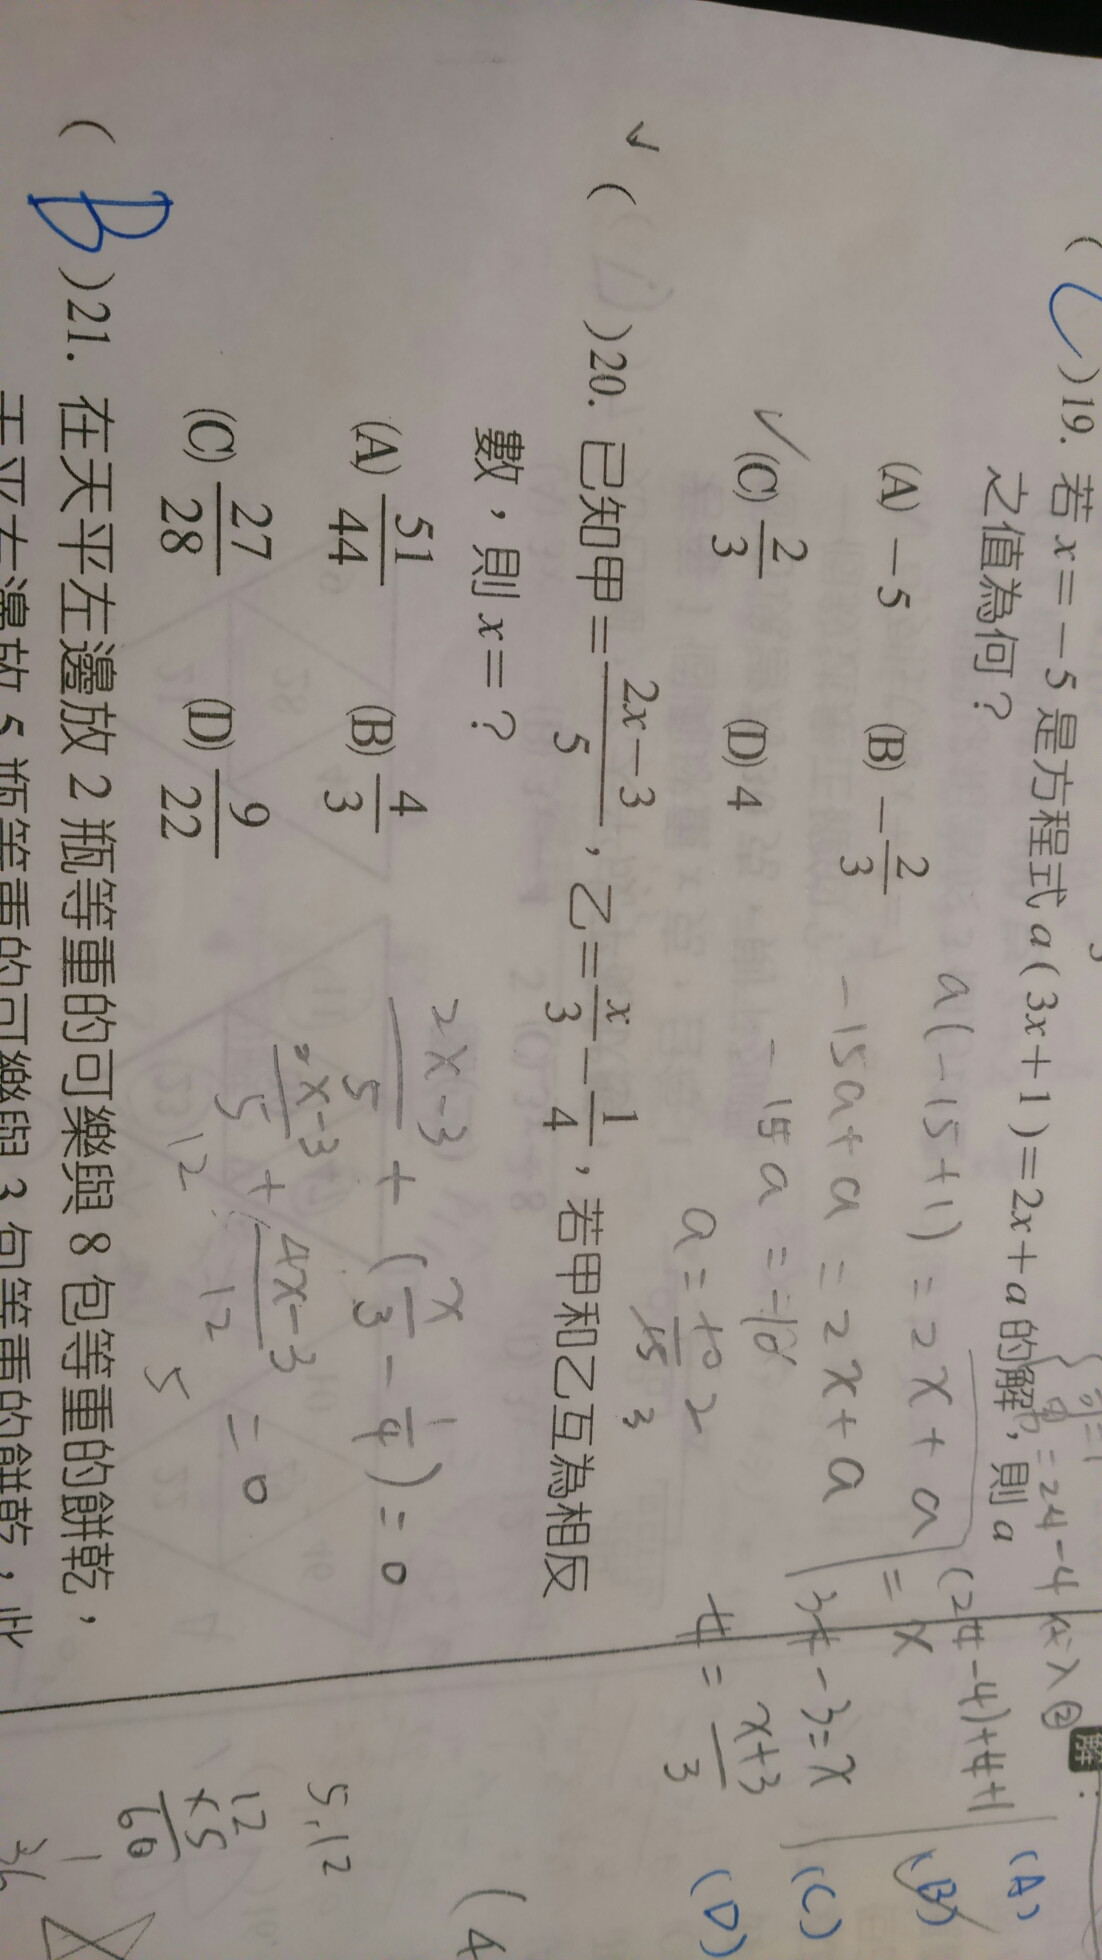 (C)19. 若 x=-5 是方程式 a(3x+1)=2x+a 的解,則 a
之值為何?
(A) -5 (B) -2/3
✓(C) 2/3 (D) 4
a(-15+1)=2x+a
-15a+a=2x+a
-15a=-10
✓( )20. 已知甲=(2x-3)/5,乙=x/3-1/4,若甲和乙互為相反
數,則 x=?
(A) 51/44 (B) 4/3
(C) 27/28 (D) 9/22
(2x-3)/5+(x/3-1/4)=0
(2x-3)/5+(4x-3)/12=0
12 5
(B)21. 在天平左邊放 2 瓶等重的可樂與 8 包等重的餅乾,
5,12
12
×5
60
解:
=24-4代入②
=x
3=x
x+3
3
(A)
(B)
(C)
(D)